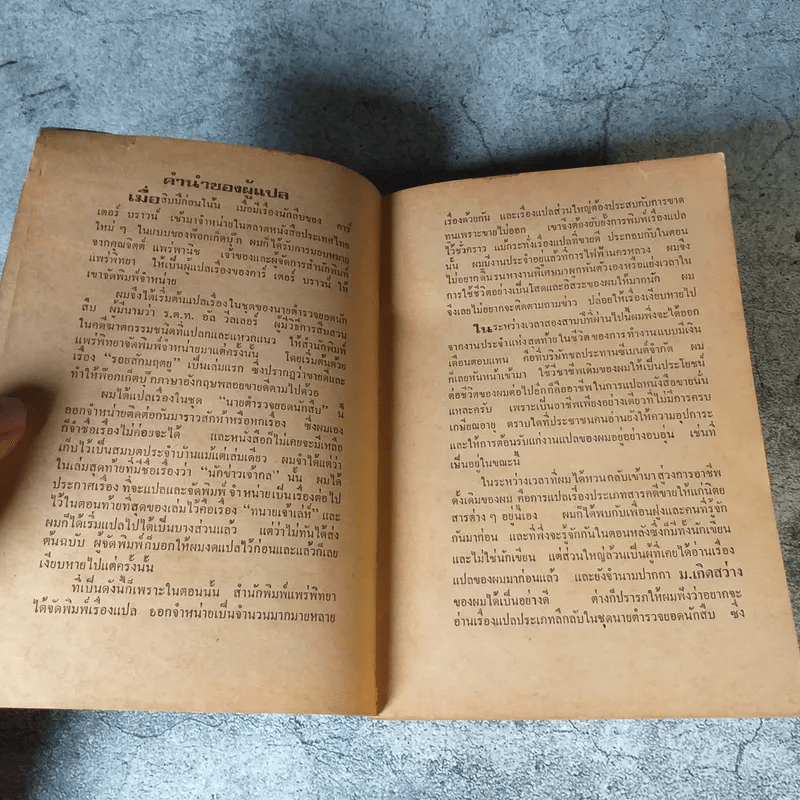 คำนำของผู้แปล
เมื่อสิบปีก่อนโน้น เมื่อมีเรื่องนักสืบของ คาร์
เตอร์ บราวน์ เข้ามาจำหน่ายในตลาดหนังสือประเทศไทย
ใหม่ ๆ ในแบบของพ็อกเก็ตบุ๊ก ผมก็ได้รับการมอบหมาย
จากคุณจิตต์ แพร่พานิช เจ้าของและผู้จัดการสำนักพิมพ์
แพร่พิทยา ให้เป็นผู้แปลเรื่องของคาร์ เตอร์ บราวน์ ให้
เขาจัดพิมพ์จำหน่าย
ผมจึงได้เริ่มต้นแปลเรื่องในชุดของนายตำรวจยอดนัก
สืบ ผู้มีนามว่า ร.ต.ท. อัล วีลเลอร์ ผู้มีวิธีการสืบสวน
ในคดีฆาตกรรมชนิดที่แปลกและแหวกแนว ให้สำนักพิมพ์
แพร่พิทยาจัดพิมพ์จำหน่ายมาแต่ครั้งนั้น โดยเริ่มต้นด้วย
เรื่อง “รอยสักมฤตยู” เป็นเล่มแรก ซึ่งปรากฏว่าขายดีและ
ทำให้พ็อกเก็ตบุ๊กภาษาอังกฤษพลอยขายดีตามไปด้วย
ผมได้แปลเรื่องในชุด “นายตำรวจยอดนักสืบ” นี้
ออกจำหน่ายติดต่อกันมาราวสักห้าหรือหกเรื่อง ซึ่งผมเอง
ก็จำชื่อเรื่องไม่ค่อยจะได้ และหนังสือก็ไม่เคยจะมีเหลือ
เก็บไว้เป็นสมบัติประจำบ้านแม้แต่เล่มเดียว ผมจำได้แต่ว่า
ในเล่มสุดท้ายที่มีชื่อเรื่องว่า “นักข่าวเจ้ากล” นั้น ผมได้
ประกาศเรื่อง ที่จะแปลและจัดพิมพ์ จำหน่ายเป็นเรื่องต่อไป
ไว้ในตอนท้ายที่สุดของเล่มไว้คือเรื่อง “ทนายเจ้าเล่ห์” และ
ผมก็ได้เริ่มแปลไปได้เป็นบางส่วนแล้ว แต่ว่าไม่ทันได้ส่ง
ต้นฉบับ ผู้จัดพิมพ์ก็บอกให้ผมงดแปลไว้ก่อนและแล้วก็เลย
เงียบหายไปแต่ครั้งนั้น
ที่เป็นดังนี้ก็เพราะในตอนนั้น สำนักพิมพ์แพร่พิทยา
ได้จัดพิมพ์เรื่องแปล ออกจำหน่ายเป็นจำนวนมากมายหลาย
เรื่องด้วยกัน และเรื่องแปลส่วนใหญ่ต้องประสบกับการขาด
ทุนเพราะขายไม่ออก เขาจึงต้องยับยั้งการพิมพ์เรื่องแปล
ไว้ชั่วคราว แม้กระทั่งเรื่องแปลที่ขายดี ประกอบกับในตอน
นั้น ผมมีงานประจำอยู่แล้วที่การไฟฟ้านครหลวง ผมจึง
ไม่อยากดิ้นรนหางานพิเศษมาผูกพันตัวเองหรือแย่งเวลาใน
การใช้ชีวิตอย่างเป็นโสดและอิสระของผมให้มากนัก ผม
จึงเลยไม่อยากจะติดตามถามข่าว ปล่อยให้เรื่องเงียบหายไป
ในระหว่างเวลาสองสามปีที่ผ่านไปนี้ผมพึ่งจะได้ออก
จากงานประจำแห่งสุดท้ายในชีวิต ของการทำงานแบบมีเงิน
เดือนตอบแทน คือที่บริษัทชลประทานซีเมนต์จำกัด ผม
ก็เลยหันหน้าเข้ามา ใช้วิชาชีพเดิมของผมให้เป็นประโยชน์
ต่อชีวิตของผมต่อไปอีกก็คืออาชีพในการแปลหนังสือขายนั่น
แหละครับ เพราะเป็นอาชีพเพียงอย่างเดียวที่ไม่มีการครบ
เกษียณอายุ ตราบใดที่ประชาชนคนอ่านยังให้ความอุปการะ
และให้การต้อนรับแก่งานแปลของผมอยู่อย่างอบอุ่น เช่นที่
เป็นอยู่ในขณะนี้
ในระหว่างเวลาที่ผมได้หวนกลับเข้ามาสู่วงการอาชีพ
ดั้งเดิมของผม คือการแปลเรื่องประเภทสารคดีขายให้แก่นิตย
สารต่าง ๆ อยู่นี้เอง ผมก็ได้พบกับเพื่อนฝูงและคนที่รู้จัก
กันมาก่อน และที่พึ่งจะรู้จักกันในตอนหลังซึ่งก็มีทั้งนักเขียน
และไม่ใช่นักเขียน แต่ส่วนใหญ่ล้วนเป็นผู้ที่เคยได้อ่านเรื่อง
แปลของผมมาก่อนแล้ว และยังจำนามปากกา ม.เกิดสว่าง
ของผมได้เป็นอย่างดี ต่างก็ปรารภให้ผมฟังว่าอยากจะ
อ่านเรื่องแปลประเภทลึกลับในชุดนายตำรวจยอดนักสืบ ซึ่ง